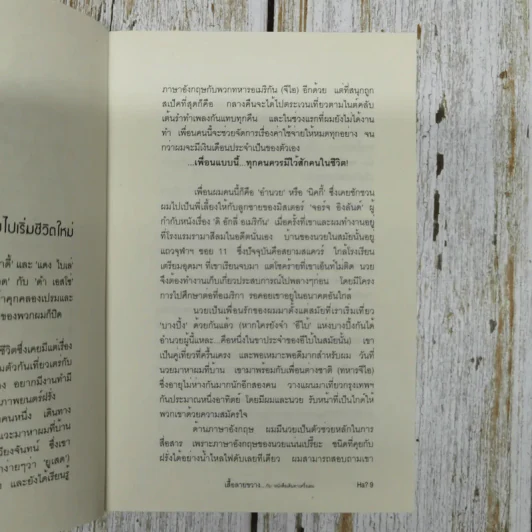 ไปเริ่มชีวิตใหม่
าตี้' และ 'แดง ไบเล่
ด' กับ 'ดำ เอสโซ่
ำคุกคลองเปรมและ
ของพวกผมก็ปิด
ชีวิตซึ่งเคยมีแต่เรื่อง
มตัวกันเที่ยวเตรกับ
อยากมีงานทำมี
าภาพยนตร์ฝรั่ง
คนหนึ่ง เดินทาง
แวะมาหาผมที่บ้าน
วียงจันทน์ ซึ่งเขา
ำง่ายๆว่า 'ยูเสด')
และยังได้เรียนรู้
ภาษาอังกฤษกับพวกทหารอเมริกัน (จีไอ) อีกด้วย แต่ที่สนุกถูก
สเป๊คที่สุดก็คือ กลางคืนจะได้ไปตระเวนเที่ยวตามไนต์คลับ
เต้นรำทำเพลงกันแทบทุกคืน และในช่วงแรกที่ผมยังไม่ได้งาน
ทำ เพื่อนคนนี้จะช่วยจัดการเรื่องค่าใช้จ่ายให้หมดทุกอย่าง จน
กว่าผมจะมีเงินเดือนประจำเป็นของตัวเอง
...เพื่อนแบบนี้...ทุกคนควรมีไว้สักคนในชีวิต!
เพื่อนผมคนนี้ก็คือ 'อำนวย' หรือ 'นิคกี้' ซึ่งเคยชักชวน
ผมไปเป็นพี่เลี้ยงให้กับลูกชายของมิสเตอร์ 'จอร์จ อิงลันด์' ผู้
กำกับหนังเรื่อง 'ดิ อักลี่ อเมริกัน' เมื่อครั้งที่เขาและผมทำงานอยู่
ที่โรงแรมรามาสีลมในอดีตนั่นเอง บ้านของนวยในสมัยนั้นอยู่
แถวจุฬาฯ ซอย 11 ซึ่งปัจจุบันคือสยามสแควร์ ใกล้โรงเรียน
เตรียมอุดมฯ ที่เขาเรียนจบมา แต่โชคร้ายที่เขาเอ็นท์ไม่ติด นวย
จึงต้องทำงานเก็บเกี่ยวประสบการณ์ไปพลางๆก่อน โดยมีโครง
การไปศึกษาต่อที่อเมริกา รอคอยเขาอยู่ในอนาคตอันไกล
นวยเป็นเพื่อนรักของผมมาตั้งแต่สมัยที่เราเริ่มเที่ยว
'บางปิ้ง' ด้วยกันแล้ว (หากใครยังจำ 'อีไบ๋' แห่งบางปิ้งกันได้
อำนวยผู้นี้แหละ...คือหนึ่งในขาประจำของอีไบ๋ในสมัยนั้น) เขา
เป็นคู่เที่ยวที่ครื้นเครง และพอเหมาะพอดีมากสำหรับผม วันที่
นวยมาหาผมที่บ้าน เขามาพร้อมกับเพื่อนต่างชาติ (ทหารจีไอ)
ซึ่งอายุไม่ห่างกันมากนักอีกสองคน วางแผนมาเที่ยวกรุงเทพฯ
กันประมาณหนึ่งอาทิตย์ โดยมีผมและนวย รับหน้าที่เป็นไกด์ให้
พวกเขาด้วยความสมัครใจ
ด้านภาษาอังกฤษ ผมมีนวยเป็นตัวช่วยหลักในการ
สื่อสาร เพราะภาษาอังกฤษของนวยแน่นเปรี๊ยะ ชนิดที่คุยกับ
ฝรั่งได้อย่างน้ำไหลไฟดับเลยทีเดียว ผมสามารถสอบถามเขา
เสื้อลายขวาง...